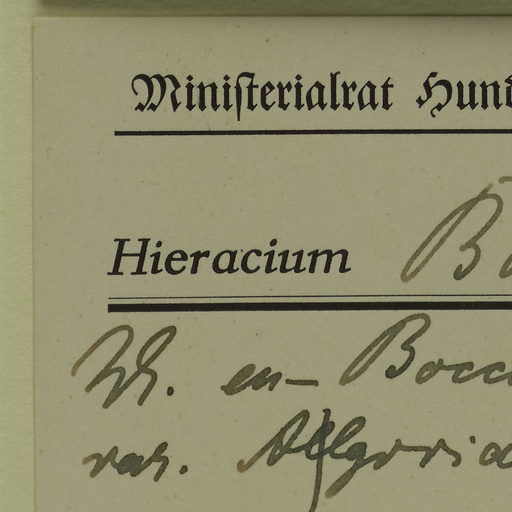 Ministerialrat Hund
Hieracium B
en- Bocc
var.